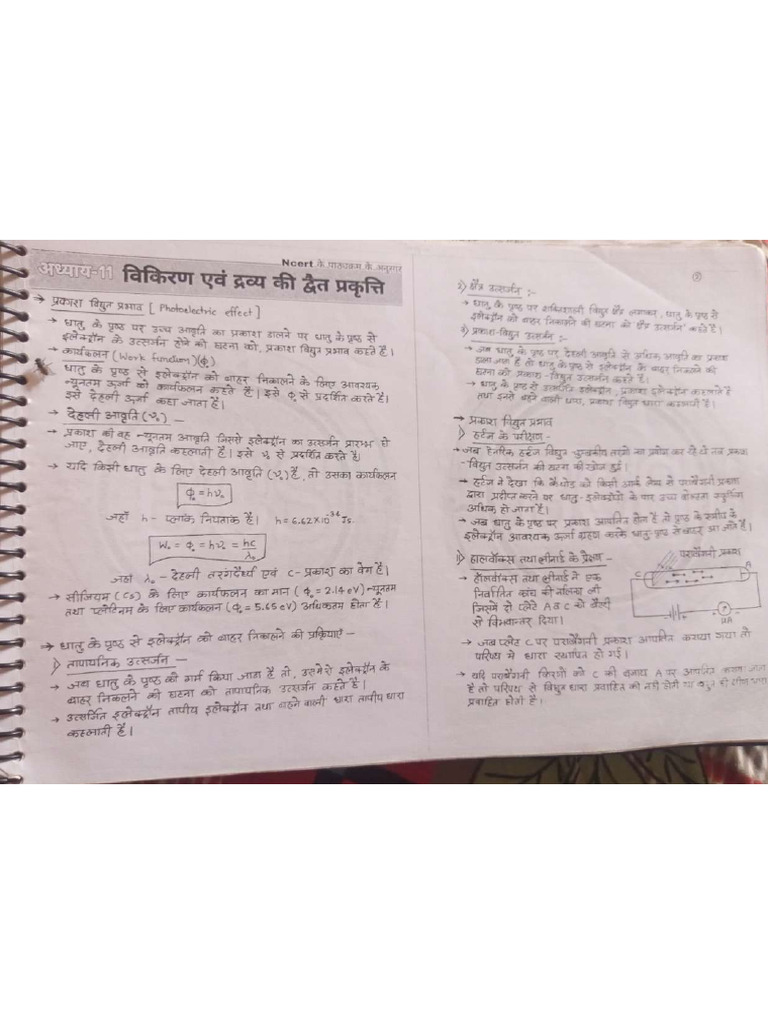 Ncert के पाठ्यक्रम के अनुसार
अध्याय-11 विकिरण एवं द्रव्य की द्वैत प्रकृत्ति
→ प्रकाश विद्युत प्रभाव [Photoelectric effect]
→ धातु के पृष्ठ पर उच्च आवृति का प्रकाश डालने पर धातु के पृष्ठ से
इलेक्ट्रॉन के उत्सर्जन होने की घटना को, प्रकाश विद्युत प्रभाव कहते हैं।
→ कार्यफलन (Work function)(ϕ)
धातु के पृष्ठ से इलेक्ट्रॉन को बाहर निकालने के लिए आवश्यक
न्यूनतम ऊर्जा को कार्यफलन कहते हैं। इसे ϕ से प्रदर्शित करते है।
इसे देहली ऊर्जा कहा जाता है।
→ देहली आवृति (ν₀) —
→ प्रकाश की वह न्यूनतम आवृति जिससे इलेक्ट्रॉन का उत्सर्जन प्रारम्भ हो
जाए, देहली आवृति कहलाती है। इसे ν₀ से प्रदर्शित करते है।
→ यदि किसी धातु के लिए देहली आवृति (ν₀) है, तो उसका कार्यफलन
ϕ₀ = hν₀
जहाँ h - प्लांक नियतांक हैं। h = 6.62×10⁻³⁴ Js
W₀ = ϕ₀ = hν₀ = hc/λ₀
जहां λ₀ - देहली तरंगदैर्ध्य एवं c - प्रकाश का वेग है।
→ सीजियम (Cs) के लिए कार्यफलन का मान (ϕ₀ = 2.14 eV) न्यूनतम
तथा प्लेटिनम के लिए कार्यफलन (ϕ₀ = 5.65 eV) अधिकतम होता है।
→ धातु के पृष्ठ से इलेक्ट्रॉन को बाहर निकालने की प्रक्रियाएँ -
1) तापायनिक उत्सर्जन —
→ जब धातु के पृष्ठ को गर्म किया जाता है तो, उसमें से इलेक्ट्रॉन के
बाहर निकलने की घटना को तापायनिक उत्सर्जन कहते है।
→ उत्सर्जित इलेक्ट्रॉन तापीय इलेक्ट्रॉन तथा बहने वाली धारा तापीय धारा
कहलाती है।
2) क्षेत्र उत्सर्जन :-
→ धातु के पृष्ठ पर शक्तिशाली विद्युत क्षेत्र लगाकर, धातु के पृष्ठ से
इलेक्ट्रॉन को बाहर निकालने की घटना को क्षेत्र उत्सर्जन कहते है।
3) प्रकाश-विद्युत उत्सर्जन :-
→ जब धातु के पृष्ठ पर देहली आवृति से अधिक आवृति का प्रकाश
डाला जाता है तो धातु के पृष्ठ से इलेक्ट्रॉन के बाहर निकलने की
घटना को प्रकाश-विद्युत उत्सर्जन कहते है।
→ धातु के पृष्ठ से उत्सर्जित इलेक्ट्रॉन, प्रकाश इलेक्ट्रॉन कहलाते है
तथा इनसे बहने वाली धारा, प्रकाश विद्युत धारा कहलाती है।
→ प्रकाश विद्युत प्रभाव
1) हर्टज के परीक्षण -
→ जब हेनरिक हर्टज विद्युत-चुम्बकीय तरंगो का प्रयोग कर रहे थे तब प्रकाश
-विद्युत उत्सर्जन की घटना की खोज हुई।
→ हर्टज ने देखा कि कैथोड को किसी आर्क लैम्प से पराबैंगनी प्रकाश
द्वारा प्रदीप्त करने पर धातु-इलेक्ट्रोडो के पार उच्च वोल्टता स्फुलिंग
अधिक हो जाता है।
→ जब धातु के पृष्ठ पर प्रकाश आपतित होता है तो पृष्ठ के समीप के
इलेक्ट्रॉन आवश्यक ऊर्जा ग्रहण करके धातु पृष्ठ से बाहर आ जाते है।
2) हालवॉक्स तथा लीनार्ड के प्रेक्षण -
→ हॉलवॉक्स तथा लीनार्ड ने एक
निर्वातित कांच की नलिका ली
जिसमें दो प्लेटे A व C को बैटरी
से विभवान्तर दिया।
पराबैंगनी प्रकाश
C
A
μA
→ जब प्लेट C पर पराबैंगनी प्रकाश आपतित कराया गया तो
परिपथ में धारा स्थापित हो गई।
→ यदि पराबैंगनी किरणों को C की बजाय A पर आपतित कराया जाता
है तो परिपथ से विद्युत धारा प्रवाहित
प्रवाहित होती है।